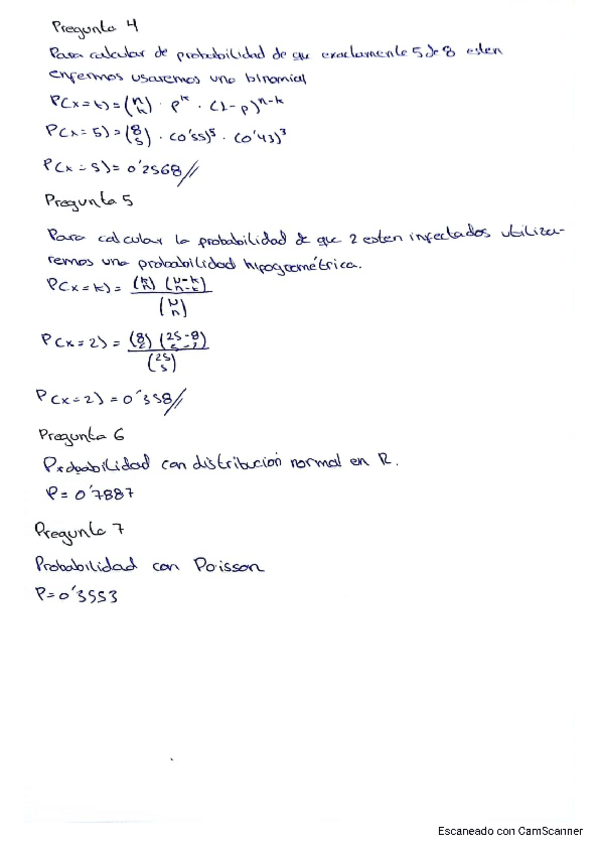 Pregunta 4
Para calcular de probabilidad de que exactamente 5 de 8 esten
enfermos usaremos una binomial
P(x=k)=(n k) · p^k · (1-p)^n-k
P(x=5)=(8 5) · (0'55)^5 · (0'43)^3
P(x=5)=0'2568//
Pregunta 5
Para calcular la probabilidad de que 2 esten infectados utiliza-
remos una probabilidad hipogeométrica.
P(x=k)= (k k) (N-k n-k)
(N n)
P(x=2) = (8 2) (25-8 5-2)
(25 5)
P(x=2)=0'358//
Pregunta 6
Probabilidad con distribución normal en R.
P=0'7887
Pregunta 7
Probabilidad con Poisson
P=0'3553
Escaneado con CamScanner